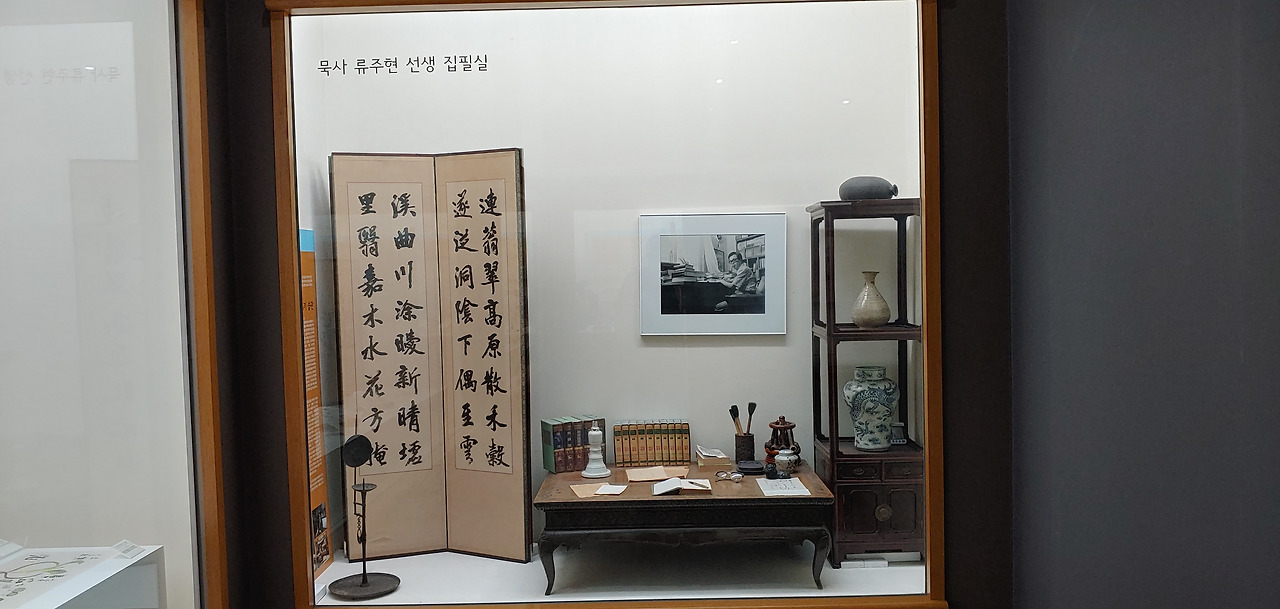 묵사 류주현 선생 집필실
連蓊翠高原散禾穀
遂從洞陰下偶至雲
溪曲川塗曖新晴墟
里翳嘉木水花方掩